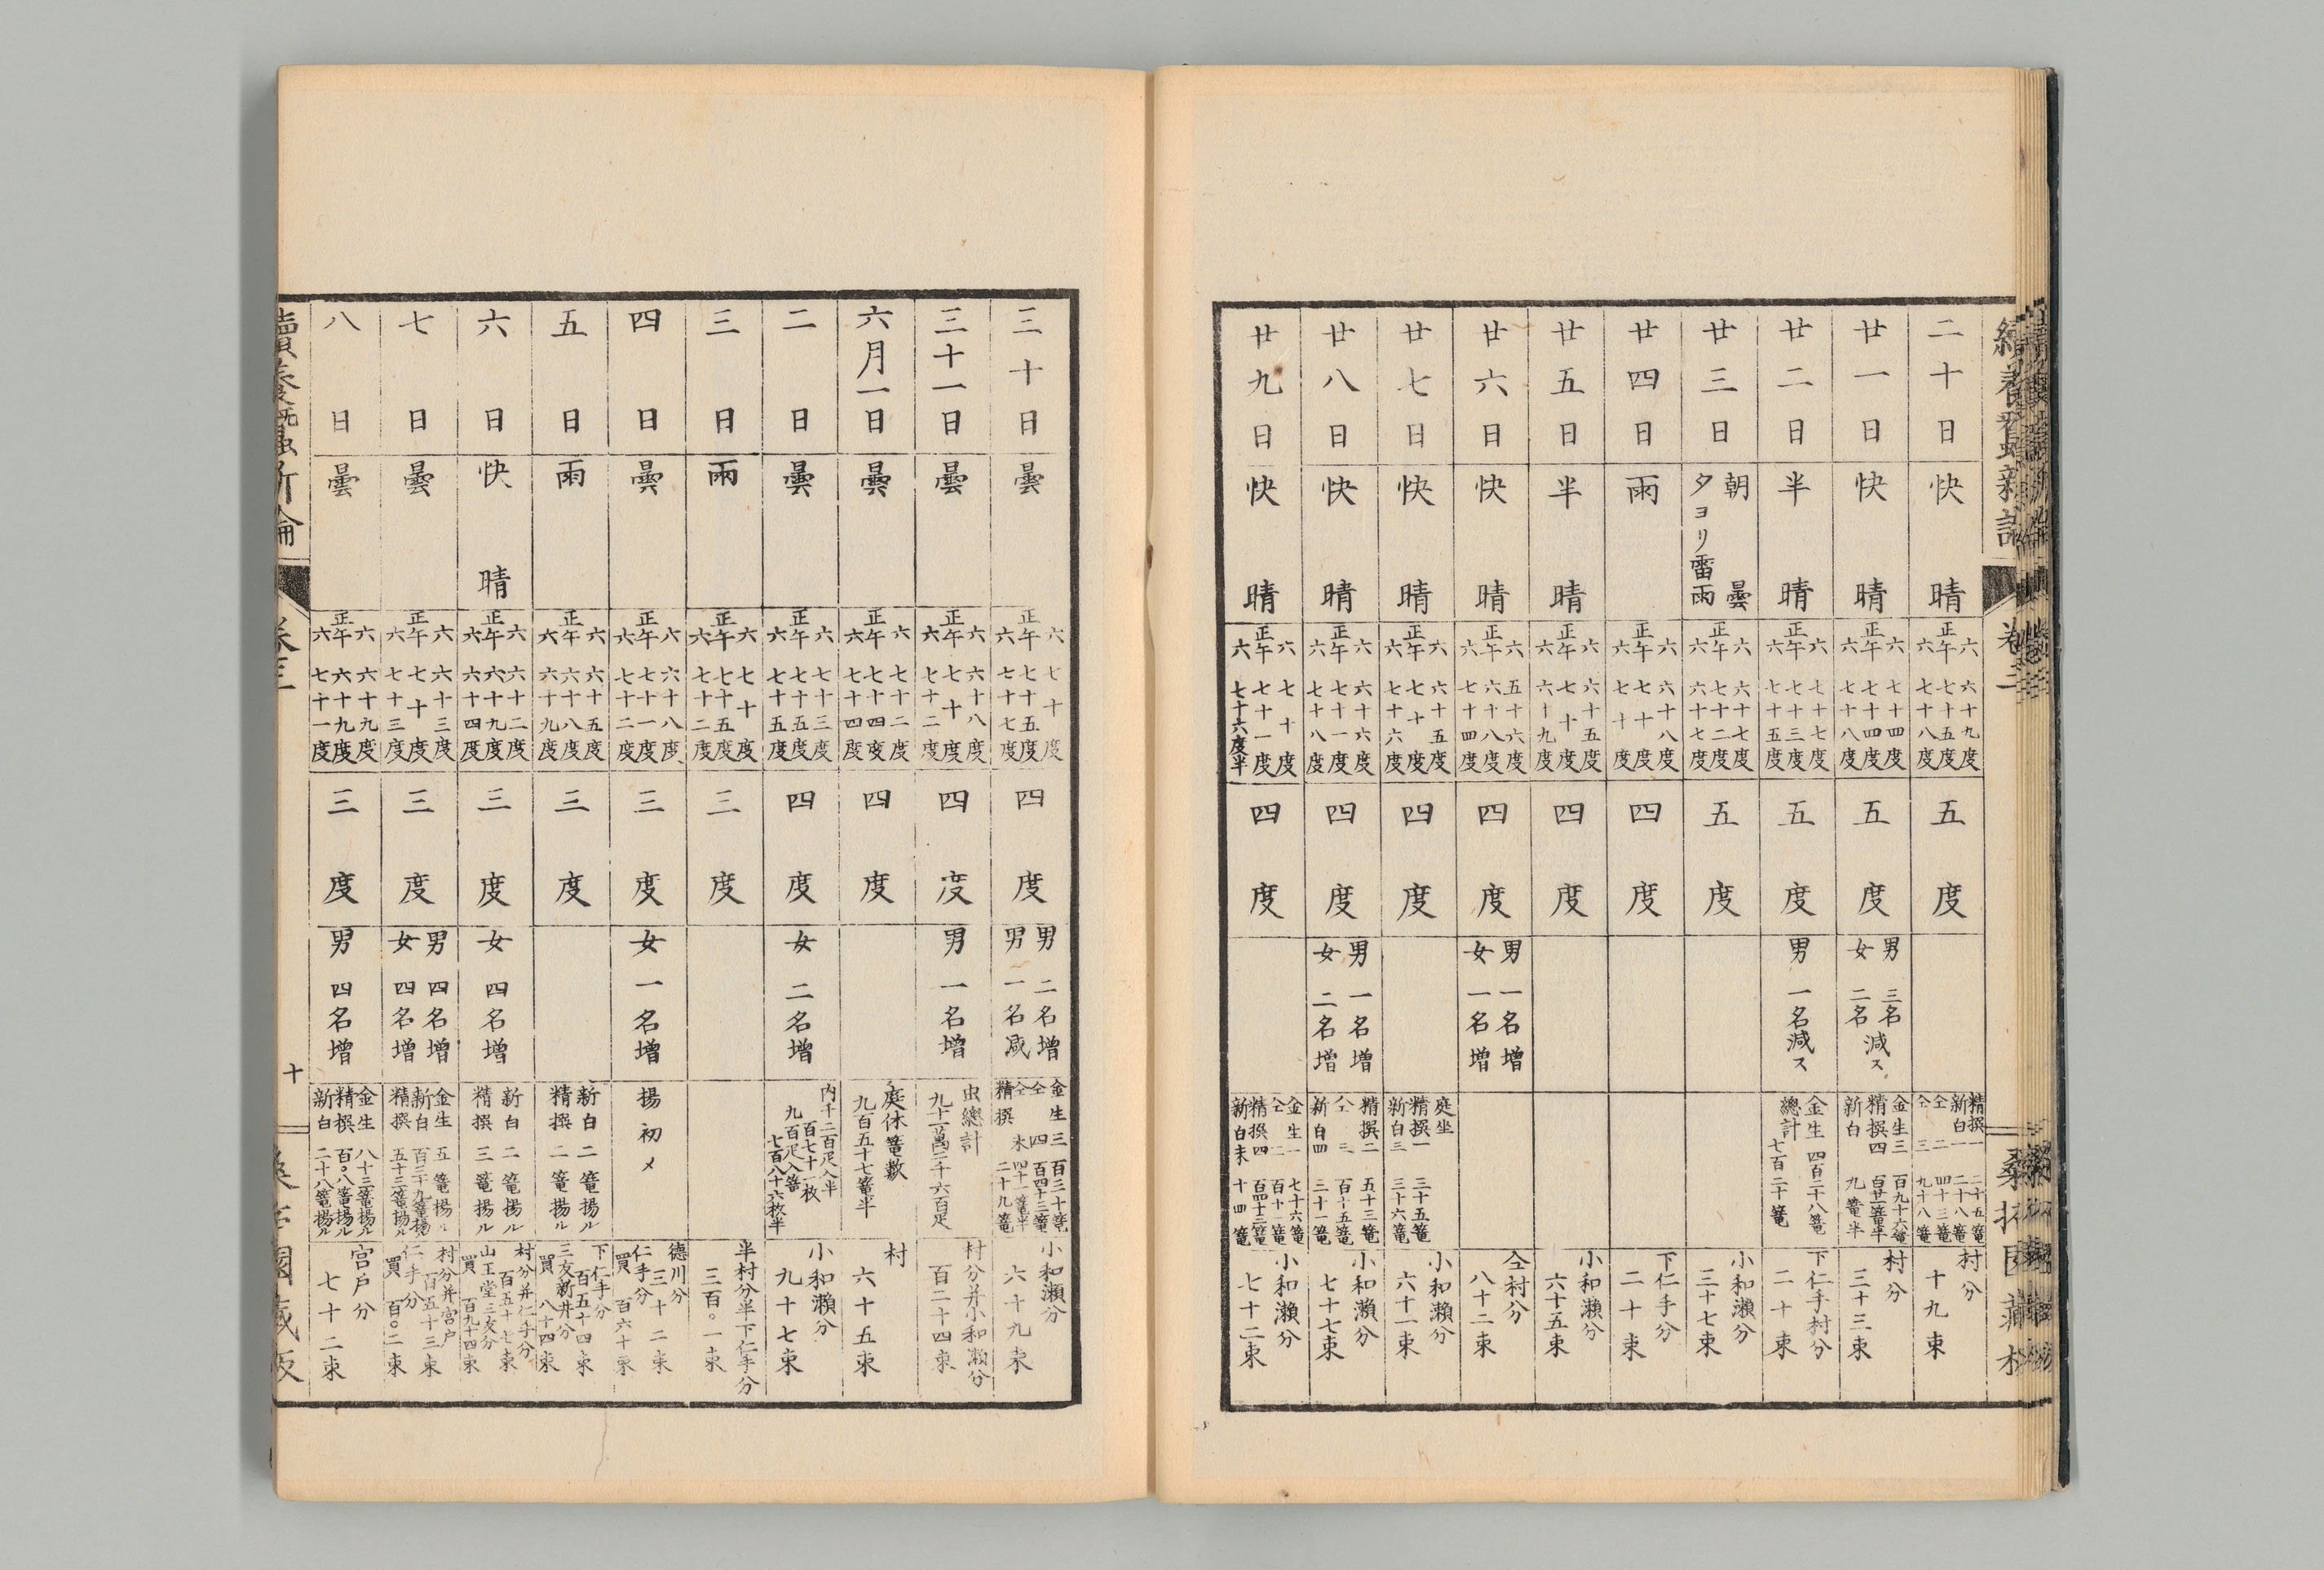 二十日
快晴
六 六十九度
正午 七十五度
六 七十八度
五度
精撰一 二十五篭
新白一 二十八篭
仝二 四十三篭
仝三 九十八篭
村分
十九束
廿一日
快晴
六 七十四度
正午 七十四度
六 七十八度
五度
男 三名
女 二名 減ス
金生三 百九十六篭
精撰四 百廿一篭半
新白 九篭半
村分
三十三束
廿二日
半晴
六 七十七度
正午 七十三度
六 七十五度
五度
男 一名減ス
金生 四百二十八篭
總計 七百二十篭
下仁手村分
二十束
廿三日
朝曇
夕ヨリ雷雨
六 六十七度
正午 七十二度
六 六十七度
五度
小和瀬分
三十七束
廿四日
雨
六 六十八度
正午 七十度
六 七十度
四度
下仁手分
二十束
廿五日
半晴
六 六十五度
正午 七十度
六 六十九度
四度
小和瀬分
六十五束
廿六日
快晴
六 五十六度
正午 六十八度
六 七十四度
四度
男 一名増
女 一名増
仝村分
八十二束
廿七日
快晴
六 六十五度
正午 七十度
六 七十六度
四度
庭坐
精撰一 三十五篭
新白三 三十六篭
小和瀬分
六十一束
廿八日
快晴
六 六十六度
正午 七十一度
六 七十八度
四度
男 一名増
女 二名増
精撰二 五十三篭
仝三 百十五篭
新白四 三十一篭
小和瀬分
七十七束
廿九日
快晴
六 七十度
正午 七十一度
六 七十六度半
四度
金生一 七十六篭
仝二 百十一篭
精撰四 百四十三篭
新白末 十四篭
小和瀬分
七十二束
三十日
曇
六 七十度
正午 七十五度
六 七十七度
四度
男 二名増
男 一名減
金生三 百三十篭
仝四 百四十三篭
仝末 四十一篭半
精撰 二十九篭
小和瀬分
六十九束
三十一日
曇
六 六十八度
正午 七十度
六 七十二度
四度
男 一名増
虫總計
九十二萬三千六百疋
村分并小和瀬分
百二十四束
六月一日
曇
六 七十二度
正午 七十四度
六 七十四度
四度
庭休篭數
九百五十七篭半
村
六十五束
二日
曇
六 七十三度
正午 七十五度
六 七十五度
四度
女 二名増
内千二百疋入半
百七十一枚
九百疋入篭
七百八十六枚半
小和瀬分
九十七束
三日
雨
六 七十度
正午 七十五度
六 七十二度
三度
半村分半下仁手分
三百〇一束
四日
曇
六 六十八度
正午 七十一度
六 七十二度
三度
女 一名増
揚初メ
徳川分
三十二束
仁手分
買 百六十束
五日
雨
六 六十五度
正午 六十八度
六 六十九度
三度
新白 二篭揚ル
精撰 二篭揚ル
下仁手分
百五十四束
三友新井分
買 八十四束
六日
快晴
六 六十二度
正午 六十九度
六 六十四度
三度
女 四名増
新白 二篭揚ル
精撰 三篭揚ル
村分并仁手分
百五十七束
山王堂三友分
買 百九十四束
七日
曇
六 六十三度
正午 七十度
六 七十三度
三度
男 四名増
女 四名増
金生 五篭揚ル
新白 百三十九篭揚ル
精撰 五十三篭揚ル
村分并宮戸
百五十三束
仁手分
買 百〇二束
八日
曇
六 六十九度
正午 六十九度
六 七十一度
三度
男 四名増
金生 八十三篭揚ル
精撰 百〇八篭揚ル
新白 二十八篭揚ル
宮戸分
七十二束
十